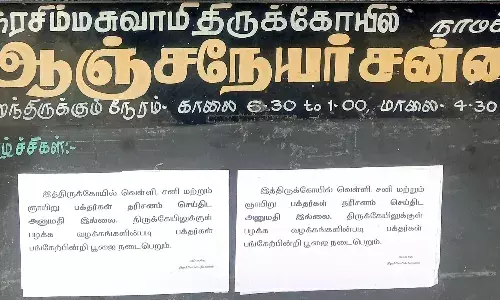 நரசிம்மசுவாமி திருக்கோயில்
ஆஞ்சநேயர் சன்
றந்திருக்கும் நேரம்- காலை 6.30 to 1-00, மாலை- 4-30
ழ்ச்சிகள்:-
இத்திருக்கோயில் வெள்ளி, சனி மற்றும்
ஞாயிறு பக்தர்கள் தரிசனம் செய்திட
அனுமதி இல்லை. திருக்கோயிலுக்குள்
பழக்க வழக்கங்களின்படி பக்தர்கள்
பங்கேற்பின்றி பூஜை நடைபெறும்.
இத்திருக்கோயில் வெள்ளி, சனி மற்றும்
ஞாயிறு பக்தர்கள் தரிசனம் செய்திட
அனுமதி இல்லை. திருக்கோயிலுக்குள்
பழக்க வழக்கங்களின்படி பக்தர்கள்
பங்கேற்பின்றி பூஜை நடைபெறும்.